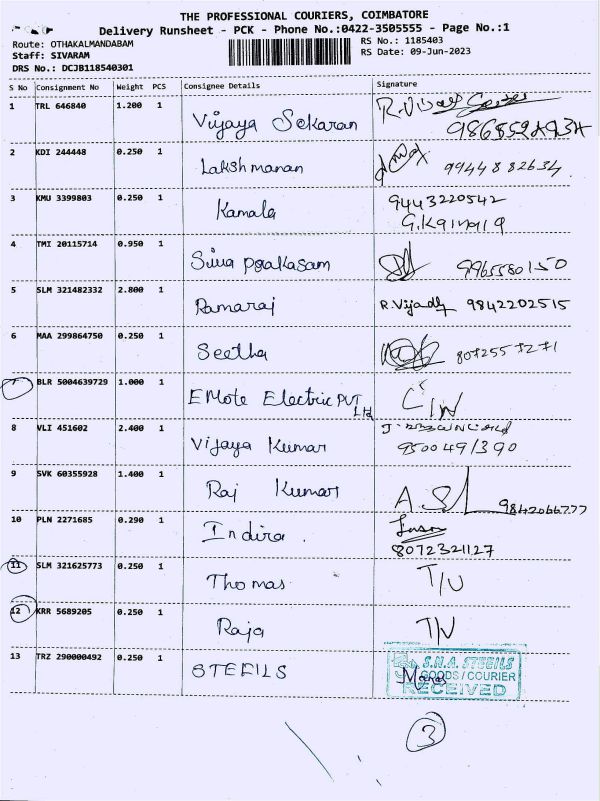 THE PROFESSIONAL COURIERS, COIMBATORE
Delivery Runsheet - PCK - Phone No.:0422-3505555 - Page No.:1
Route: OTHAKALMANDABAM
RS No.: 1185403
Staff: SIVARAM
RS Date: 09-Jun-2023
DRS No.: DCJB118540301
S No Consignment No Weight PCS Consignee Details Signature
1 TRL 646840 1.200 1 Vijaya Sekaran
2 KDI 244448 0.250 1 Lakshmanan 9944882634
3 KMU 3399803 0.250 1 Kamala 9443220542
4 TMI 20115714 0.950 1 Siva Prakasam 9965580150
5 SLM 321482332 2.800 1 Ramaraj R.Vijady 9842202515
6 MAA 299864750 0.250 1 Seetha 8072557271
7 BLR 5004639729 1.000 1 EMote Electric PVT
Ltd
8 VLI 451602 2.400 1 Vijaya Kumar
9500491390
9 SVK 60355928 1.400 1 Raj Kumar 9842066777
10 PLN 2271685 0.290 1 Indira.
8072321127
11 SLM 321625773 0.250 1 Thomas T/U
12 KRR 5689205 0.250 1 Raja
13 TRZ 290000492 0.250 1 STEEILS
S.N.A. STEEILS
GOODS/COURIER
RECEIVED
3